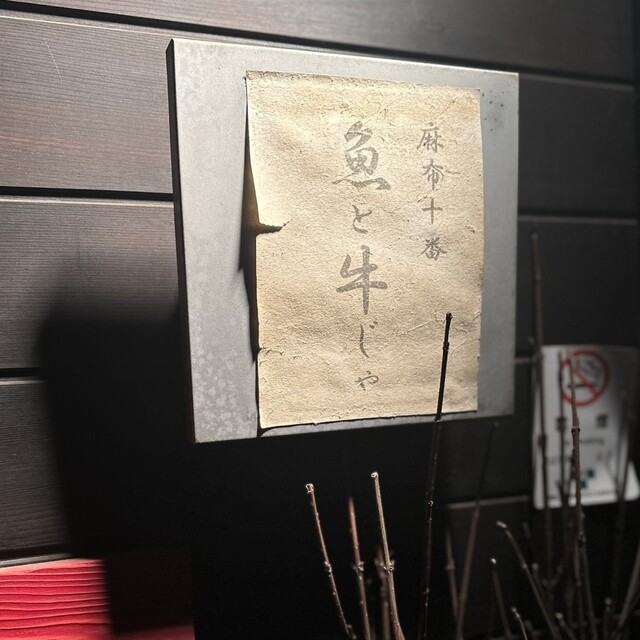 麻布十番
魚と牛じゃ